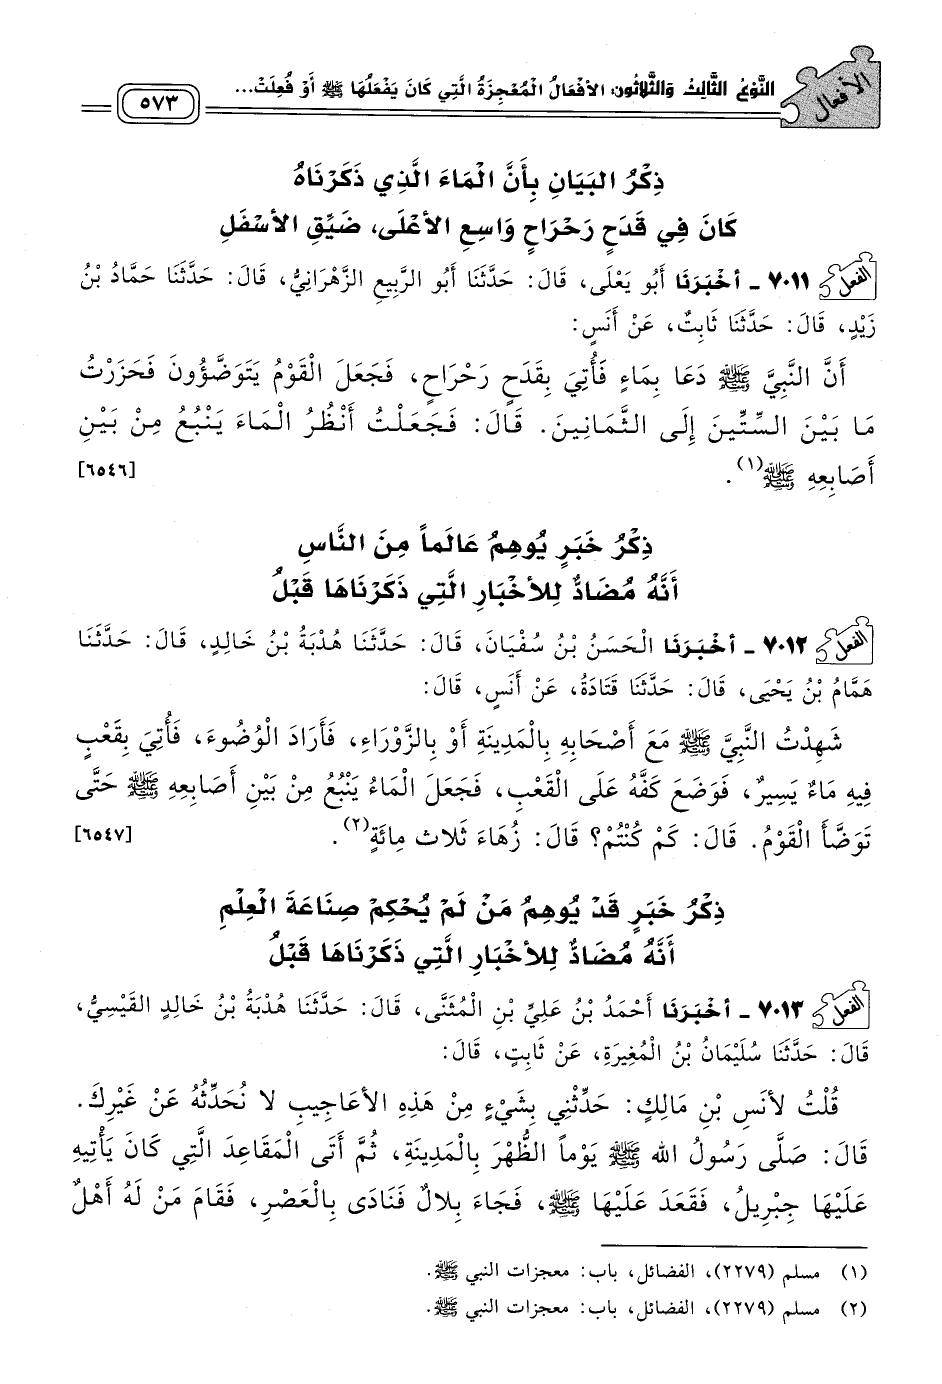 الأفعال
النَّوْعُ الثَّالِثُ وَالثَّلَاثُونَ: الأَفْعَالُ الْمُعْجِزَةُ الَّتِي كَانَ يَفْعَلُهَا ﷺ أَوْ فُعِلَتْ...
٥٧٣
ذِكْرُ البَيَانِ بِأَنَّ الْمَاءَ الَّذِي ذَكَرْنَاهُ
كَانَ فِي قَدَحٍ رَحْرَاحٍ وَاسِعِ الأَعْلَى، ضَيِّقِ الأَسْفَلِ
الفعل ٧٠١١ - أَخْبَرَنَا أَبُو يَعْلَى، قَالَ: حَدَّثَنَا أَبُو الرَّبِيعِ الزَّهْرَانِيُّ، قَالَ: حَدَّثَنَا حَمَّادُ بْنُ
زَيْدٍ، قَالَ: حَدَّثَنَا ثَابِتٌ، عَنْ أَنَسٍ:
أَنَّ النَّبِيَّ ﷺ دَعَا بِمَاءٍ فَأُتِيَ بِقَدَحٍ رَحْرَاحٍ، فَجَعَلَ الْقَوْمُ يَتَوَضَّؤُونَ فَحَزَرْتُ
مَا بَيْنَ السِّتِّينَ إِلَى الثَّمَانِينَ. قَالَ: فَجَعَلْتُ أَنْظُرُ الْمَاءَ يَنْبُعُ مِنْ بَيْنِ
أَصَابِعِهِ ﷺ(١). [٦٥٤٦]
ذِكْرُ خَبَرٍ يُوهِمُ عَالَماً مِنَ النَّاسِ
أَنَّهُ مُضَادٌّ لِلأَخْبَارِ الَّتِي ذَكَرْنَاهَا قَبْلُ
الفعل ٧٠١٢ - أَخْبَرَنَا الْحَسَنُ بْنُ سُفْيَانَ، قَالَ: حَدَّثَنَا هُدْبَةُ بْنُ خَالِدٍ، قَالَ: حَدَّثَنَا
هَمَّامُ بْنُ يَحْيَى، قَالَ: حَدَّثَنَا قَتَادَةُ، عَنْ أَنَسٍ، قَالَ:
شَهِدْتُ النَّبِيَّ ﷺ مَعَ أَصْحَابِهِ بِالْمَدِينَةِ أَوْ بِالزَّوْرَاءِ، فَأَرَادَ الْوُضُوءَ، فَأُتِيَ بِقَعْبٍ
فِيهِ مَاءٌ يَسِيرٌ، فَوَضَعَ كَفَّهُ عَلَى الْقَعْبِ، فَجَعَلَ الْمَاءُ يَنْبُعُ مِنْ بَيْنِ أَصَابِعِهِ ﷺ حَتَّى
تَوَضَّأَ الْقَوْمُ. قَالَ: كَمْ كُنْتُمْ؟ قَالَ: زُهَاءَ ثَلَاث مِائَةٍ(٢). [٦٥٤٧]
ذِكْرُ خَبَرٍ قَدْ يُوهِمُ مَنْ لَمْ يُحْكِمْ صِنَاعَةَ الْعِلْمِ
أَنَّهُ مُضَادٌّ لِلأَخْبَارِ الَّتِي ذَكَرْنَاهَا قَبْلُ
الفعل ٧٠١٣ - أَخْبَرَنَا أَحْمَدُ بْنُ عَلِيِّ بْنِ الْمُثَنَّى، قَالَ: حَدَّثَنَا هُدْبَةُ بْنُ خَالِدٍ القَيْسِيُّ،
قَالَ: حَدَّثَنَا سُلَيْمَانُ بْنُ الْمُغِيرَةِ، عَنْ ثَابِتٍ، قَالَ:
قُلْتُ لأَنَسِ بْنِ مَالِكٍ: حَدِّثْنِي بِشَيْءٍ مِنْ هَذِهِ الأَعَاجِيبِ لا نُحَدِّثُهُ عَنْ غَيْرِكَ.
قَالَ: صَلَّى رَسُولُ الله ﷺ يَوْماً الظُّهْرَ بِالْمَدِينَةِ، ثُمَّ أَتَى الْمَقَاعِدَ الَّتِي كَانَ يَأْتِيهِ
عَلَيْهَا جِبْرِيلُ، فَقَعَدَ عَلَيْهَا ﷺ، فَجَاءَ بِلَالٌ فَنَادَى بِالْعَصْرِ، فَقَامَ مَنْ لَهُ أَهْلٌ
(١) مسلم (٢٢٧٩)، الفضائل، باب: معجزات النبي ﷺ.
(٢) مسلم (٢٢٧٩)، الفضائل، باب: معجزات النبي ﷺ.